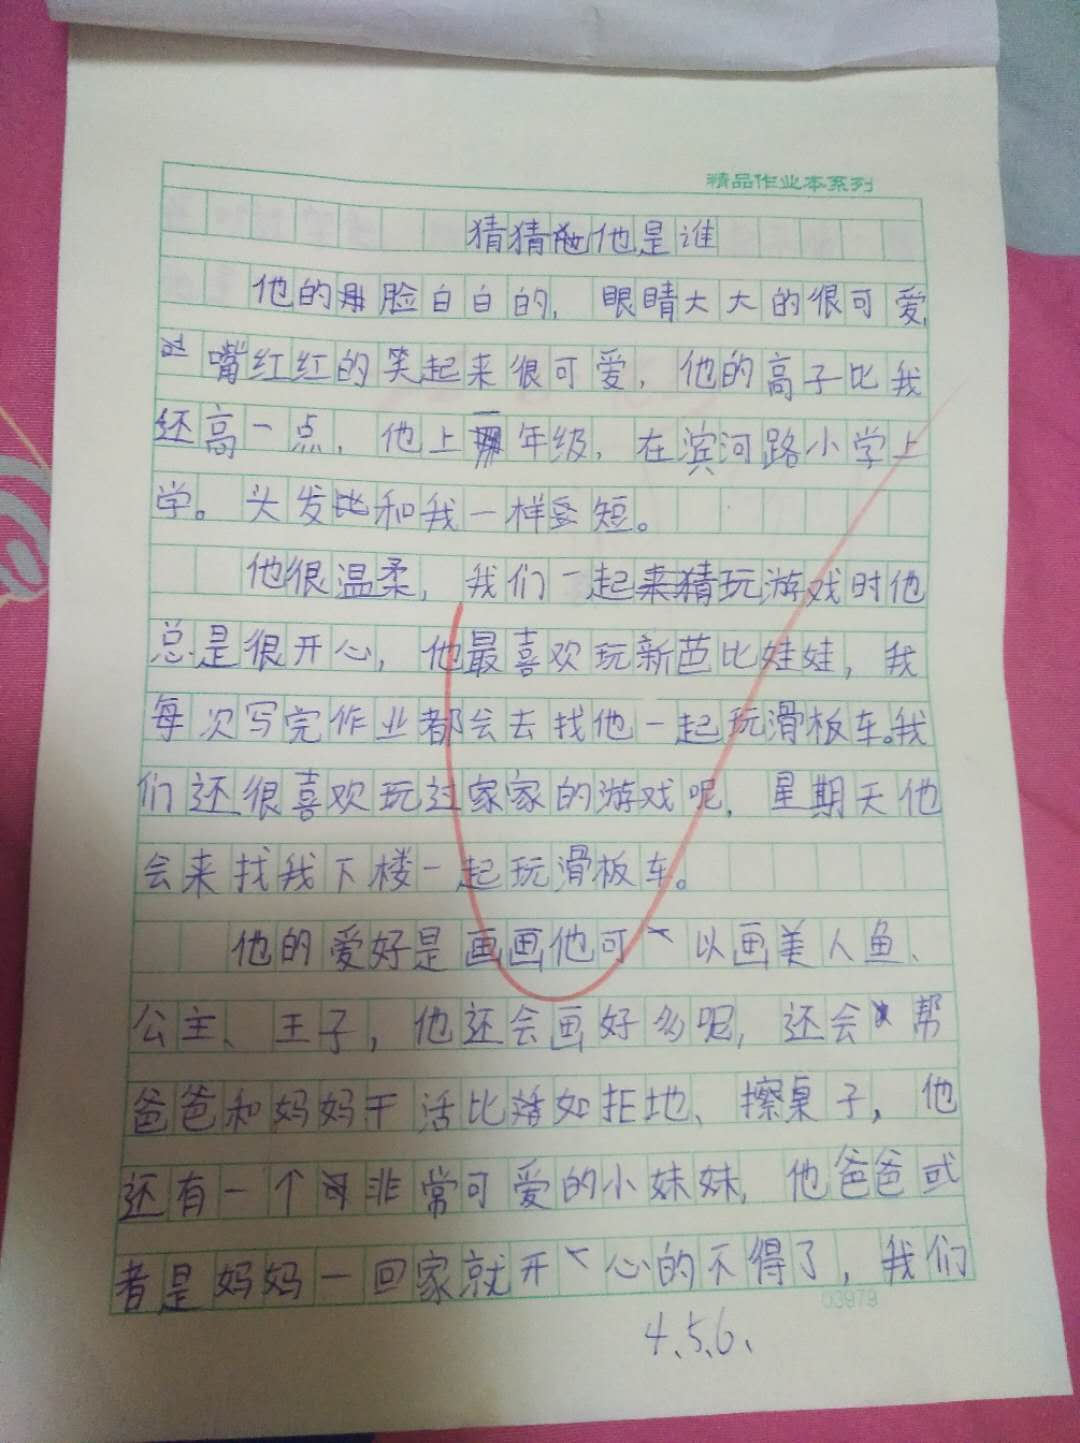 精品作业本系列
猜猜他是谁
他的脸白白的，眼睛大大的很可爱，
嘴红红的笑起来很可爱，他的高子比我
还高一点，他上一年级，在滨河路小学上
学。头发和我一样短。
他很温柔，我们一起玩游戏时他
总是很开心，他最喜欢玩新芭比娃娃，我
每次写完作业都会去找他一起玩滑板车。我
们还很喜欢玩过家家的游戏呢，星期天他
会来找我下楼一起玩滑板车。
他的爱好是画画他可以画美人鱼、
公主、王子，他还会画好多呢，还会帮
爸爸和妈妈干活比如拒地、擦桌子，他
还有一个非常可爱的小妹妹，他爸爸或
者是妈妈一回家就开心的不得了，我们
03979
4、5、6、